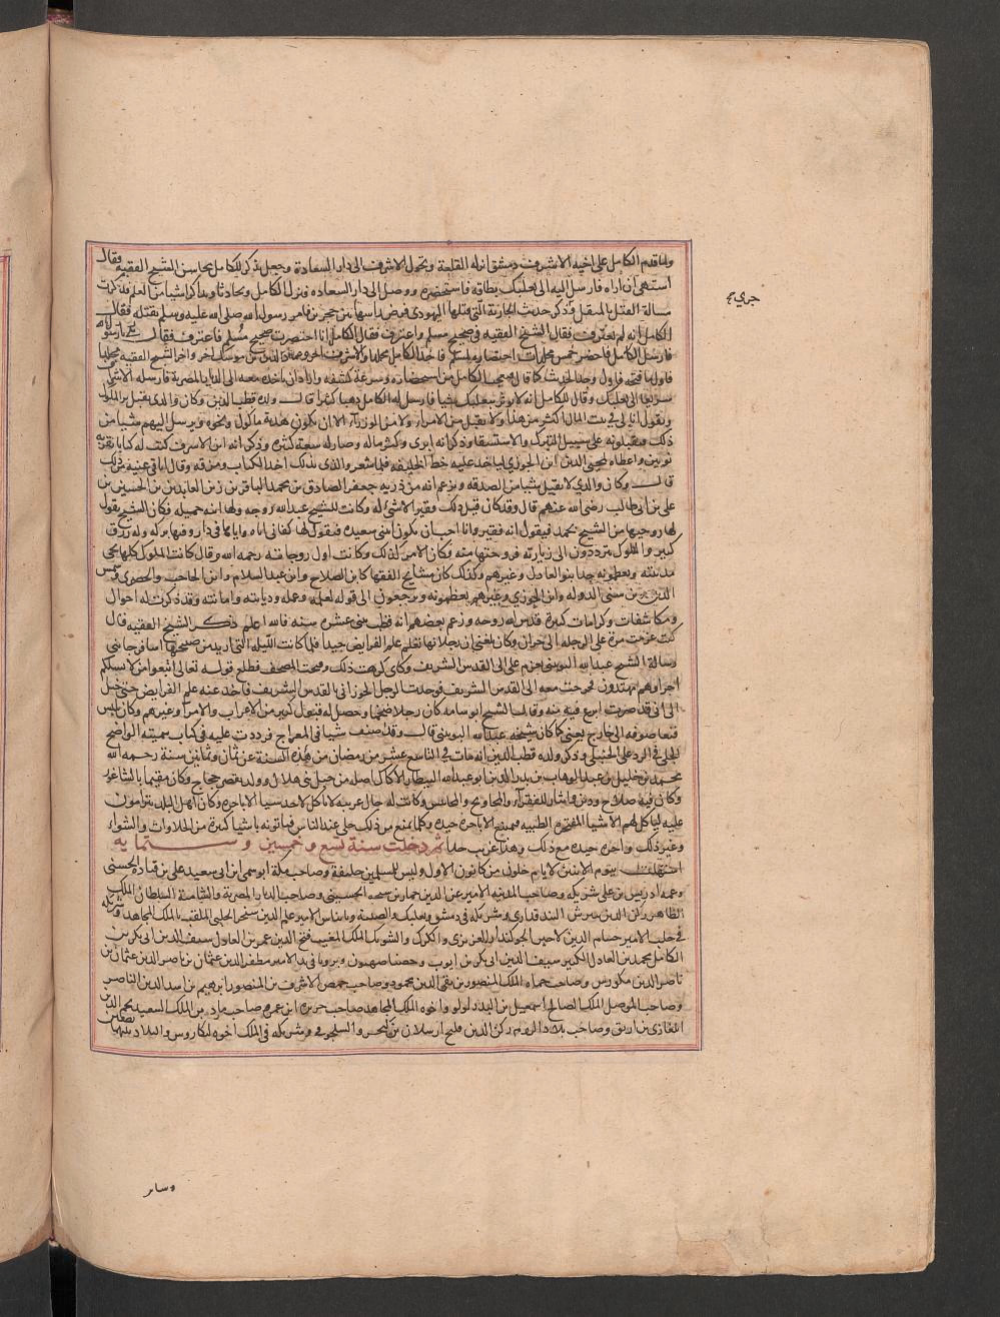 ولما قدم الكامل على اخيه الاشرف دمشق انزله القلعة وتحول الاشرف الى دار السعادة وجعل يذكر للكامل محاسن الشيخ الفقيه فقال
اشتهى ان اراه فارسل اليه الى بعلبك بطاقه فاستحضره ووصل الى دار السعاده فنزل الكامل وتحادثا وتذاكرا شيا من العلم فذكرت
مسالة القتل بالمثقل وذكر حديث الجارية التى قتلها اليهودى فرض راسها بين حجرين فامر رسول الله صلى الله عليه وسلم بقتله فقال
الكامل انه لم يعترف فقال الشيخ الفقيه فى صحيح مسلم واعترف فقال الكامل انا اختصرت صحيح مسلم فاعترف فقال
فارسل الكامل فاحضر خمس مجلدات اختصاره لمسلم فاخذ الكامل مجلدا والاشرف اخر وعماد الدين بن موسك اخر واخذ الشيخ الفقيه مجلدا
فاول ما فتحه فاول وجد الحديث كما قال فتعجب الكامل من استحضاره وسرعة كشفه واراد ان ياخذه معه الى الديار المصرية فارسله الاشرف
سريعا الى بعلبك وقال للكامل انه لا يوثر ببعلبك شيا فارسل له الكامل ذهبا كثيرا قال ولده قطب الدين وكان والدى يقبل بر الملوك
ويقول انا لى فى بيت المال اكثر من هذا ولا يقبل من الامراء ولا من الوزراء الا ان يكون هدية ماكول ونحوه ويرسل اليهم شيا من
ذلك فيقبلونه على سبيل التبرك والاستشفا وذكر انه اثرى وكثر ماله وصار له سعة كثيره وذكر انه ان الاشرف كتب له كتابا بقرية
يونين واعطاه لمحيى الدين ابن الجوزي لياخذ عليه خط الخليفه فلما شعر والدى بذلك اخذ الكتاب ومزقه وقال انا فى غنية عن ذلك
قال وكان والدى لا يقبل شيا من الصدقه ويزعم انه من ذرية جعفر الصادق بن محمد الباقر بن زين العابدين بن الحسين بن
على بن ابى طالب رضى الله عنهم قال وقد كان قبل ذلك فقيرا لا شئ له وكانت للشيخ عبد الله زوجه ولها ابنة جميله فكان الشيخ يقول
لها زوجيها من الشيخ محمد فيقول انه فقير وانا احب ان تكون ابنتى سعيده فيقول لها كانى اياه واياها فى دار وفيها بركه وله رزق
كثير والملوك يترددون الى زيارته فزوجتها منه فكان الامر كذلك وكانت اول زوجاته رحمه الله وقال كانت الملوك كلها تجى
مدينته ويعظمونه جدا بنو العادل وغيرهم وكذلك كان مشايخ الفقها كابن الصلاح وابن عبد السلام وابن الحاجب والحصرى وشمس
الدين بن سنى الدوله وابن الجوزي وغيرهم يعظمونه ويرجعون الى قوله لعلمه وعمله وديانته وامانته وقد ذكرت له احوال
ومكاشفات وكرامات كثيرة قدس الله روحه وزعم بعضهم انه قطب منذ ثنتى عشره سنه فالله اعلم وذكر الشيخ الفقيه قال
عزمت مرة على الرحلة الى حران وكان بلغنى ان رجلا بها يعلم علم الفرايض جيدا فلما كانت الليله التى اريد من صبيحتها اسافر جاءتنى
رسالة الشيخ عبد الله اليونينى يعزم على الى القدس الشريف وكانى كرهت ذلك وفتحت المصحف فطلع قوله تعالى اتبعوا من لا يسلكم
اجرا وهم مهتدون فخرجت معه الى القدس الشريف فوجدت الرجل الحرانى بالقدس الشريف فاخذت عنه علم الفرايض حتى خيل
الى انى قد صرت ابرع فيه منه وقال الشيخ ابو شامه كان رجلا ضخما وحصل له قبول كثير من الاعراب والامرا وغيرهم وكان يلبس
قبعا صوفه الى خارج يعنى كما كان شيخه عبد الله اليونينى قال وقد صنف شيا فى المعراج فرددت عليه فى كتاب سميته الواضح
الجلى فى الرد على الحنبلى وذكر ولده قطب الدين انه مات فى التاسع عشر من رمضان من هذه السنة عن ثمان وثمانين سنة رحمه الله
محمد بن خليل بن عبد الوهاب بن بدر الدين ابو عبد الله البيطار الاكال اصله من جبل بنى هلال وولد بقصر حجاج وكان مقيما بالشاغور
وكان فيه صلاح ودين وايثار للفقرآء والمحاويج والمحابيس وكانت له حال غريبه لا ياكل لاحد شيا الا باجره وكان اهل البلد يترامون
عليه لياكل لهم الاشيا المفتخره الطيبه فيمتنع الا باجره جيده وكلما يمتنع من ذلك حلى عند الناس فياتونه باشيا كثيرة من الحلاوات والشواء
وغير ذلك واجره جيده مع ذلك وهذا غريب جدا ثم دخلت سنة تسع وخمسين وستمايه
استهلت بيوم الاثنين لايام خلون من كانون الاول وليس للمسلمين خليفة وصاحب مكة ابو نمى بن ابى سعيد على بن قتاده الحسنى
وعمه ادريس بن على شريكه وصاحب المدينه الامير عز الدين جماز بن شيحه الحسينى وصاحب الديار المصرية والشامية السلطان الملك
الظاهر ركن الدين بيبرش البندقدارى وشريكه فى دمشق وبعلبك والصبيبة وبانياس الامير علم الدين سنجر الحلبى الملقب بالملك المجاهد وشريكه
فى حلب الامير حسام الدين لاجين الجوكندار العزيزى والكرك والشوبك الملك المغيث فتح الدين عمر بن العادل سيف الدين ابى بكر بن
الكامل محمد بن العادل الكبير سيف الدين ابى بكر بن ايوب وحصنا صهيون وبرزيا فى يد الامير مظفر الدين عثمان بن ناصر الدين
ناصر الدين منكورس وصاحب حماه الملك المنصور بن تقى الدين محمود وصاحب حمص الاشرف بن المنصور ابراهيم بن اسد الدين الناصر
وصاحب الموصل الملك الصالح اسمعيل بن البدر لولو واخوه الملك المجاهد صاحب جزيره ابن عمر وصاحب ماردين الملك السعيد نجم الدين
الغازى بن ارتق وصاحب بلاد الروم ركن الدين قليج ارسلان بن كيخسرو السلجوقى وشريكه فى الملك اخوه كيكاوس والبلاد بينهما نصفين
وساير